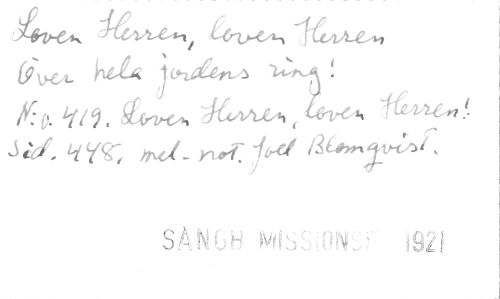 Loven Herren, loven Herren
Över hela jordens ring!
N:o. 419. Loven Herren, loven Herren!
Sid. 448. mel. not. Joel Blomqvist.
SANGB MISSIONSF 1921